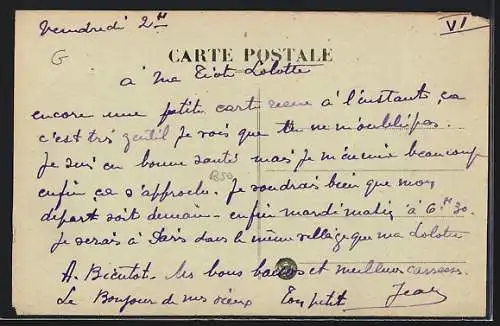 Vendredi 2 H
VI
G
CARTE POSTALE
à ma Tiot Lolotte
encore une petite cart reçue à l'instant, ça
c'est très gentil je vois que tu ne m'oubli pas.
Je suis en bonne santé mais je m'ennuie beaucoup
enfin, ça s'approche. Je voudrais bien que mon
B50
départ soit demain - enfin mardi matin à 6 H 30.
Je serais à Paris dans le même village que ma Lolotte
A. Bientot. les bons baisers et meilleurs caresses.
Le Bonjour de mes vieux Ton petit Jean